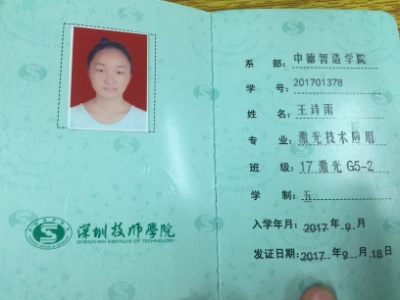 深圳技师学院
SHENZHEN INSTITUTE OF TECHNOLOGY
系 部：中德智造学院
学 号：201701378
姓 名：王诗雨
专 业：激光技术应用
班 级：17激光G5-2
学 制：五
入学年月：2017年9月
发证日期：2017年9月18日